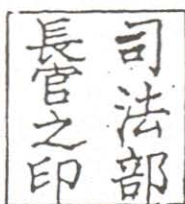 司法部
長官之印